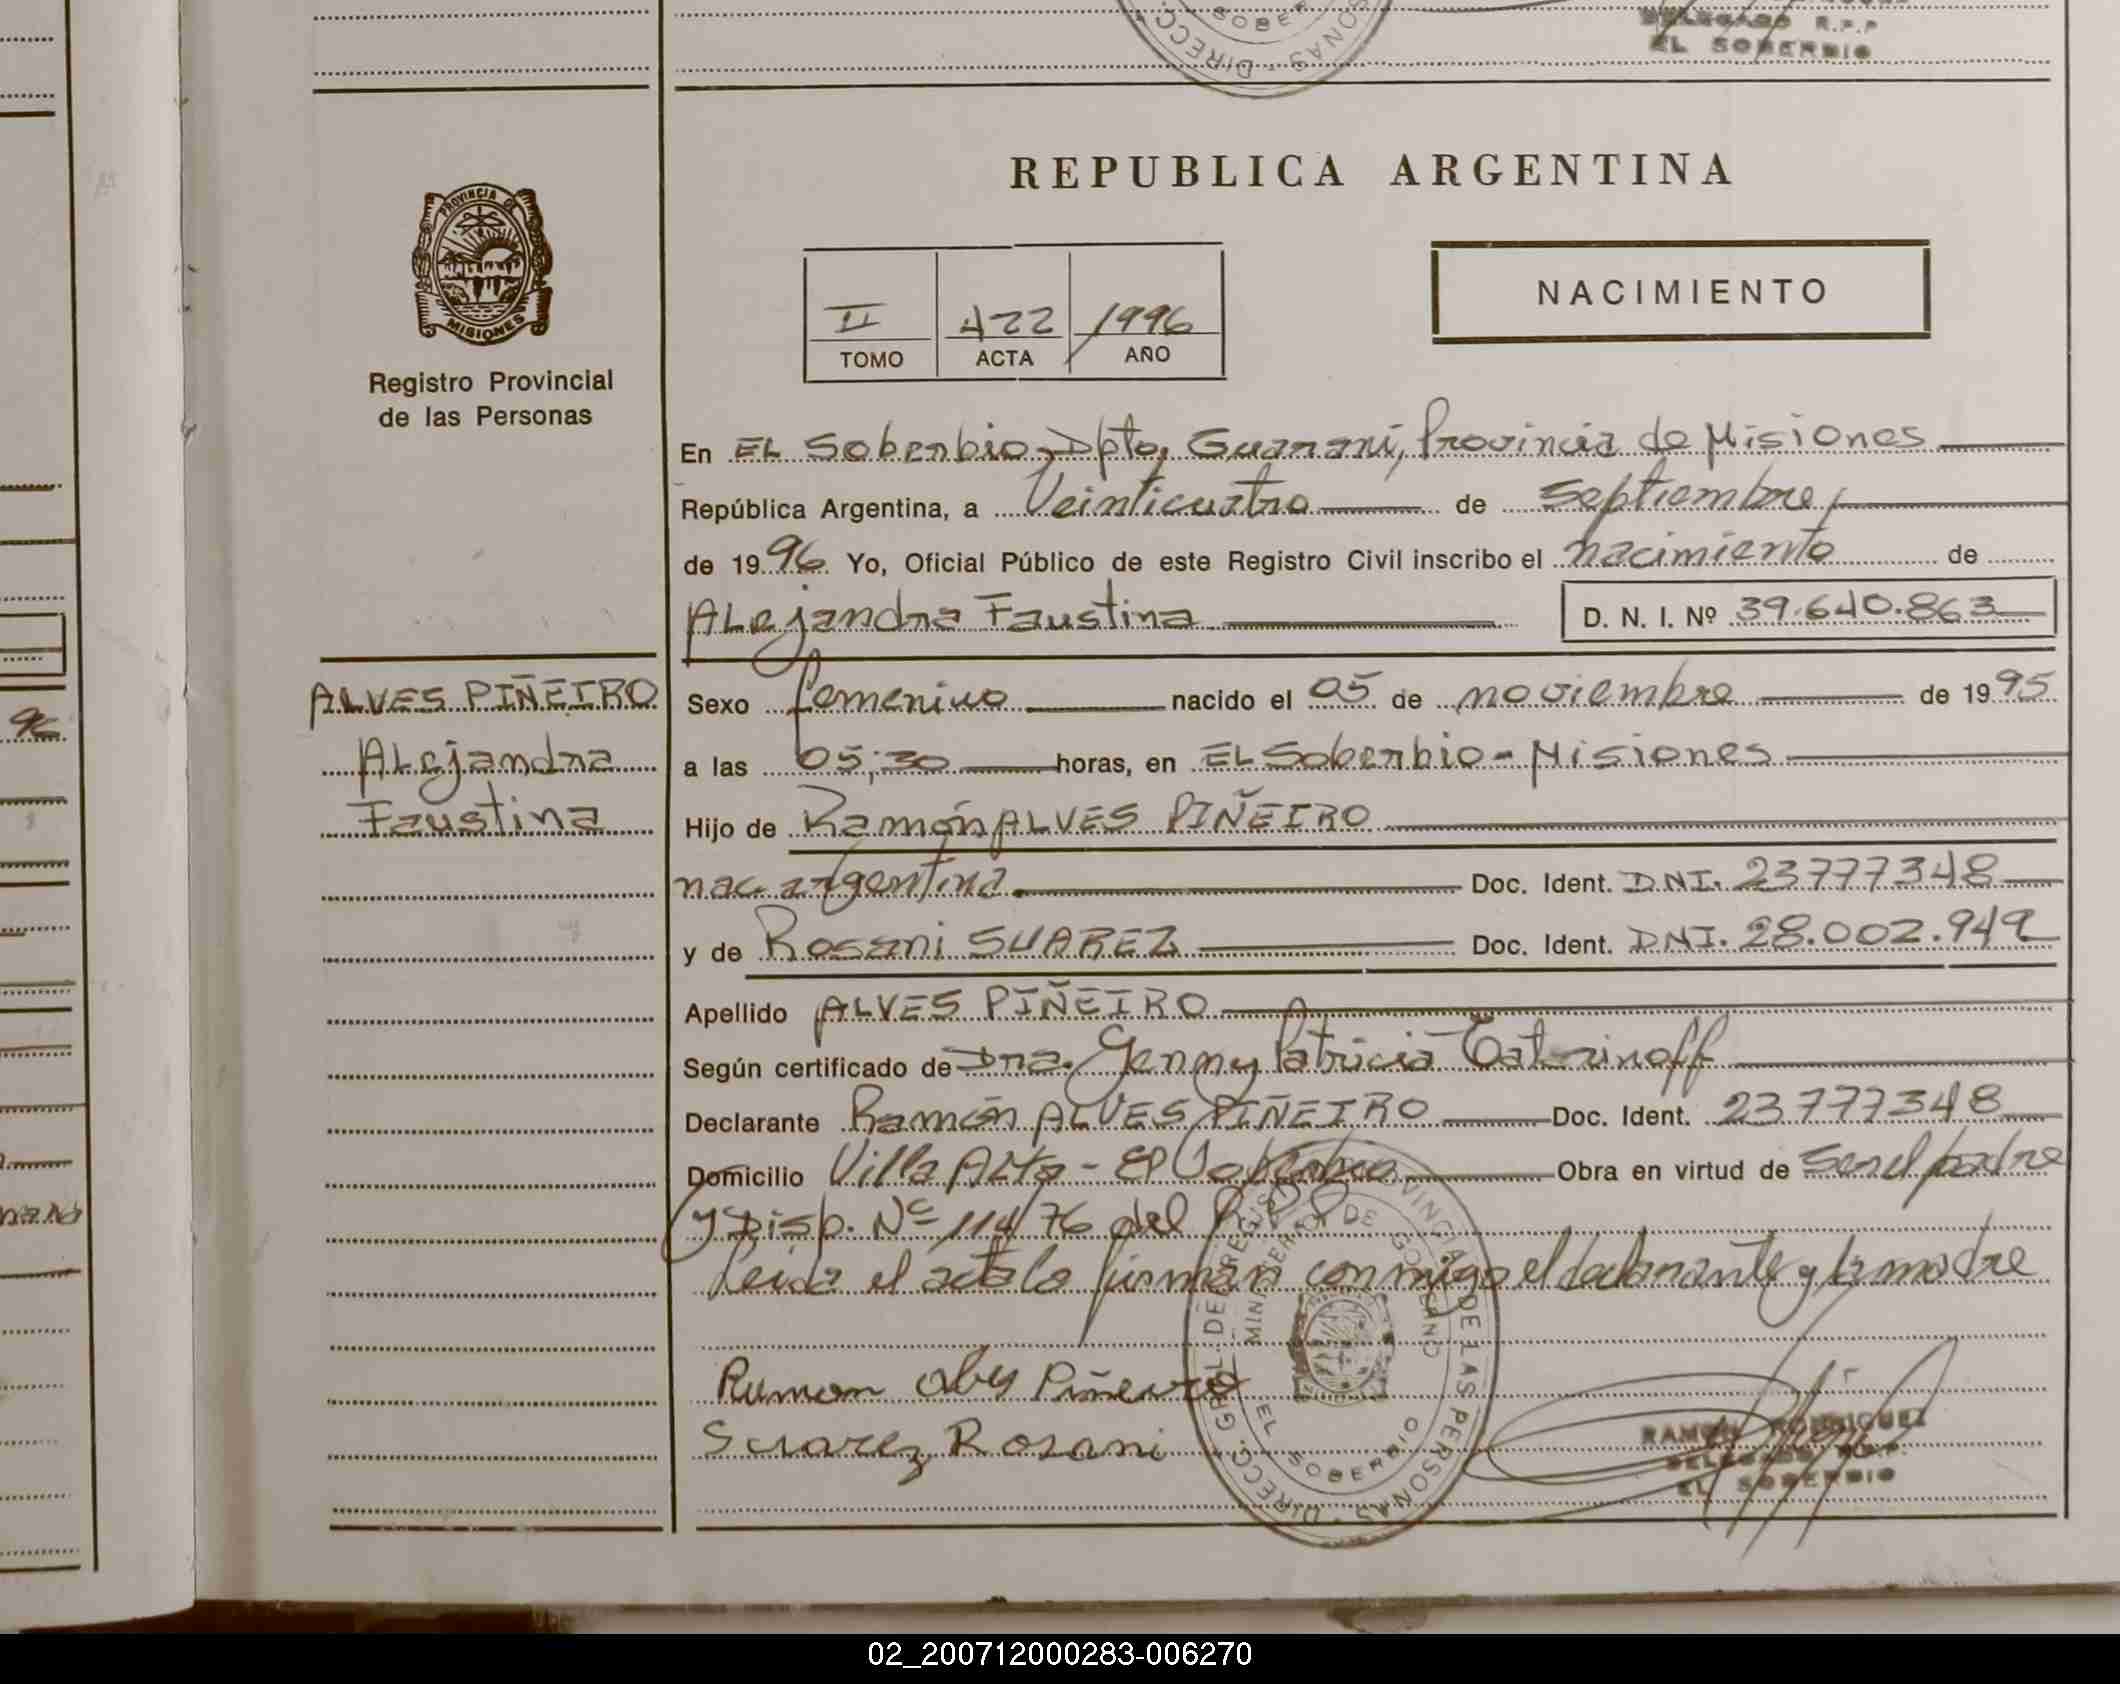 DELEGADO R.P.P
EL SOBERBIO
REPUBLICA ARGENTINA
PROVINCIA DE
MISIONES
Registro Provincial
de las Personas
II 422 1996
TOMO ACTA AÑO
NACIMIENTO
En EL Soberbio, Dpto, Guaraní, Provincia de Misiones
República Argentina, a Veinticuatro de septiembre,
de 1996 Yo, Oficial Público de este Registro Civil inscribo el nacimiento de
Alejandra Faustina D. N. I. Nº 39.640.863
ALVES PIÑEIRO
Alejandra
Faustina
Sexo femenino nacido el 05 de noviembre de 1995
a las 05;30 horas, en EL Soberbio - Misiones
Hijo de Ramón ALVES PIÑEIRO
nac. argentina Doc. Ident. DNI. 23777348
y de Rosani SUAREZ Doc. Ident. DNI. 28.002.949
Apellido ALVES PIÑEIRO
Según certificado de Dra. Genny Patricia
Declarante Ramón ALVES PIÑEIRO Doc. Ident. 23777348
Domicilio Villa Alta - El Soberbio Obra en virtud de ser el padre
y Disp. Nº 114/76 del R.P.P
Leida el acta la firman conmigo el declarante y la madre
Ramon Piñeiro
Suarez Rosani
DIRECC. GRAL. DE REGISTRO PROVINCIAL DE LAS PERSONAS
MINISTERIO DE GOBIERNO
EL SOBERBIO
RAMON RODRIGUEZ
DELEGADO R.P.P.
EL SOBERBIO
02_200712000283-006270